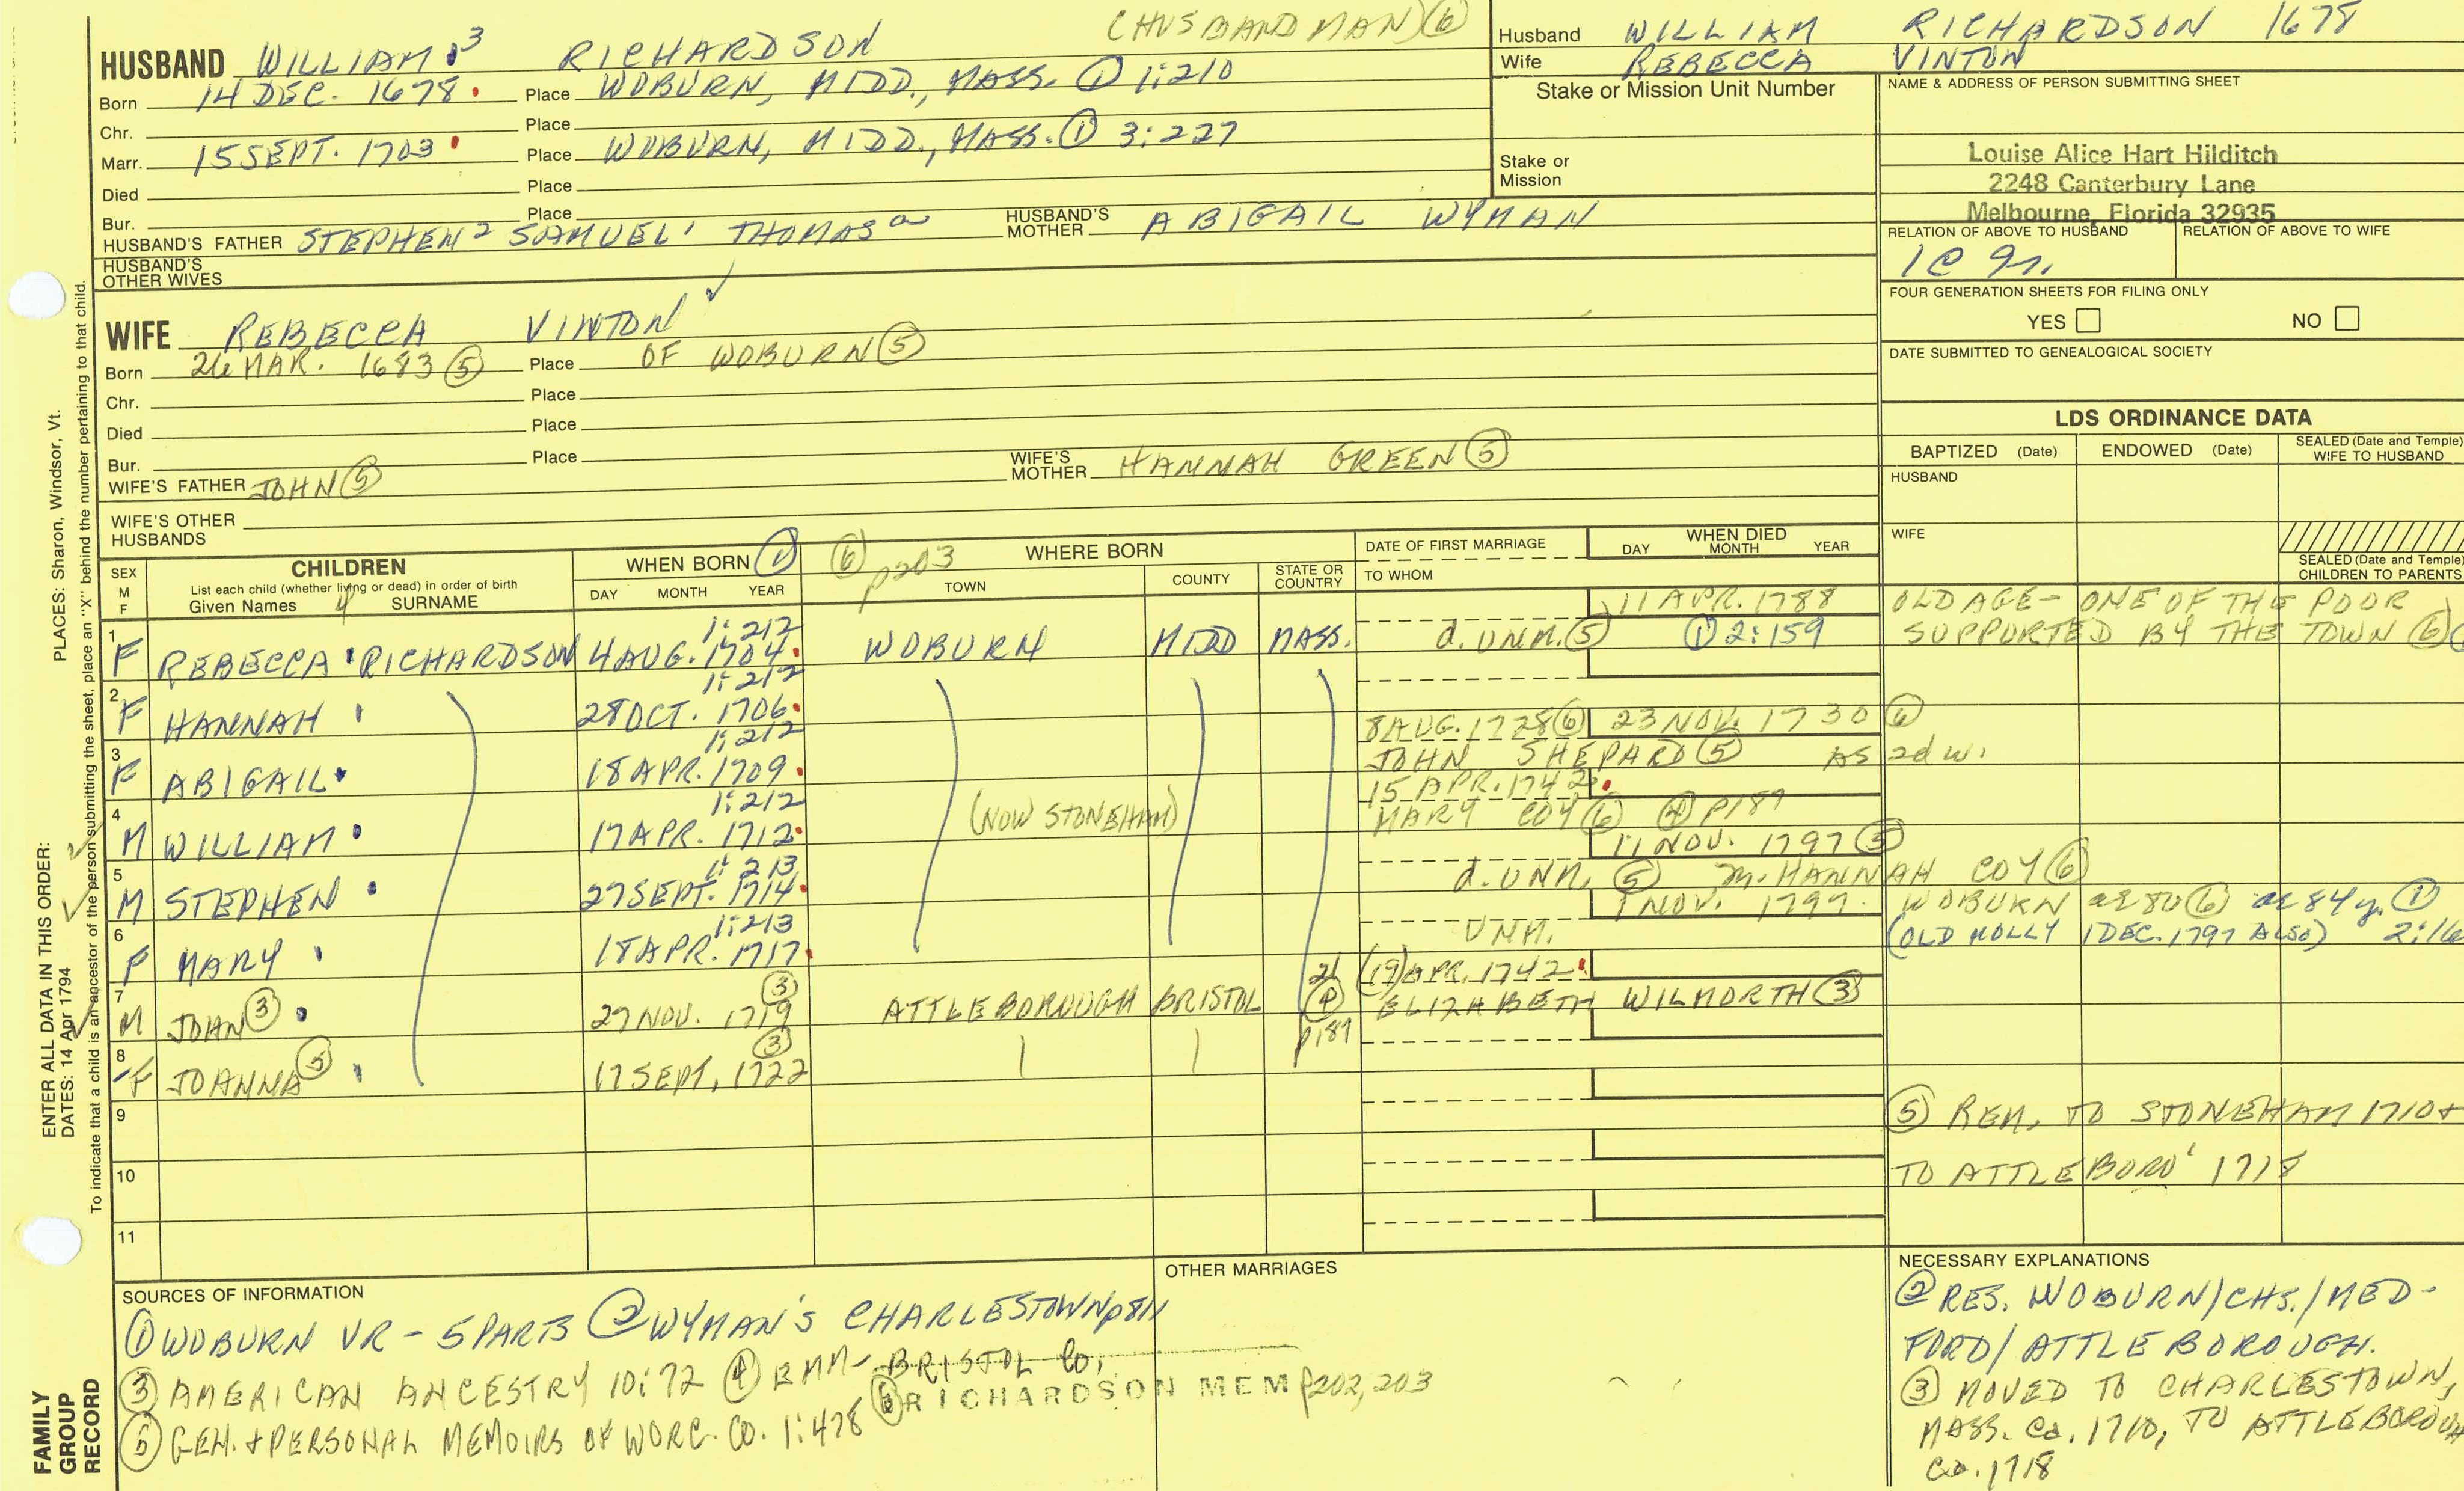 (HUSBANDMAN) ⑥
HUSBAND WILLIAM 3 RICHARDSON
Born 14 DEC. 1678. Place WOBURN, MIDD., MASS. ① 1:210
Chr. Place
Marr. 15 SEPT. 1703 Place WOBURN, MIDD., MASS. ① 3:227
Died Place
Bur. Place
HUSBAND'S FATHER STEPHEN 2 SAMUEL 1 THOMAS a HUSBAND'S MOTHER ABIGAIL WYMAN
HUSBAND'S OTHER WIVES
Husband WILLIAM RICHARDSON 1678
Wife REBECCA VINTON
Stake or Mission Unit Number
Stake or Mission
NAME & ADDRESS OF PERSON SUBMITTING SHEET
Louise Alice Hart Hilditch
2248 Canterbury Lane
Melbourne, Florida 32935
RELATION OF ABOVE TO HUSBAND RELATION OF ABOVE TO WIFE
FOUR GENERATION SHEETS FOR FILING ONLY
YES NO
DATE SUBMITTED TO GENEALOGICAL SOCIETY
WIFE REBECCA VINTON ✓
Born 26 MAR. 1683 ⑤ Place OF WOBURN ⑤
Chr. Place
Died Place
Bur. Place
WIFE'S FATHER JOHN ⑤ WIFE'S MOTHER HANNAH GREEN ⑤
WIFE'S OTHER HUSBANDS
LDS ORDINANCE DATA
BAPTIZED (Date) ENDOWED (Date) SEALED (Date and Temple) WIFE TO HUSBAND
HUSBAND
WIFE
SEALED (Date and Temple) CHILDREN TO PARENTS
SEX M F
CHILDREN
List each child (whether living or dead) in order of birth
Given Names 4 SURNAME
WHEN BORN ①
DAY MONTH YEAR
⑥ p203 WHERE BORN
TOWN COUNTY STATE OR COUNTRY
DATE OF FIRST MARRIAGE
TO WHOM
WHEN DIED
DAY MONTH YEAR
11 APR. 1788 OLD AGE - ONE OF THE POOR
1:212
1 F REBECCA RICHARDSON 4 AUG. 1704. WOBURN MIDD MASS. d. UNM. ⑤ ① 2:159 SUPPORTED BY THE TOWN ⑥
1:212
2 F HANNAH 28 OCT. 1706.
8 AUG. 1728 ⑥ 23 NOV. 1730 ⑥
1:212
3 F ABIGAIL 18 APR. 1709. JOHN SHEPARD ⑤ AS 2d w.
15 APR. 1742.
1:212
4 M WILLIAM 17 APR. 1712. (NOW STONEHAM) MARY COY ⑥ ④ p189
11 NOV. 1797 ⑤
1:213
5 M STEPHEN 27 SEPT. 1714. d. UNM. ⑤ m. HANNAH COY ⑥
1 NOV. 1797. WOBURN ae 80 ⑥ ae 84 y. ①
1:213
6 F MARY 18 APR. 1717. UNM. (OLD MOLLY 1 DEC. 1797 ALSO) 2:16
21 (19) APR. 1742
7 M JOHN ③ 27 NOV. 1719 ③ ATTLEBOROUGH BRISTOL ④ p189 ELIZABETH WILMORTH ③
8 F JOANNA ⑤ 17 SEPT, 1722 ③
9
⑤ REM. TO STONEHAM 1710 +
10
TO ATTLEBORO' 1718
11
SOURCES OF INFORMATION
① WOBURN VR - 5 PARTS ② WYMAN'S CHARLESTOWN p811
③ AMERICAN ANCESTRY 10:72 ④ EMM - BRISTOL Co.
⑤ GEN. + PERSONAL MEMOIRS OF WORC. CO. 1:478 ⑥ RICHARDSON MEM p202,203
OTHER MARRIAGES
NECESSARY EXPLANATIONS
② RES. WOBURN/CHS./MED-
FORD/ATTLEBOROUGH.
③ MOVED TO CHARLESTOWN,
MASS. Ca. 1710, TO ATTLEBOROUGH
Ca. 1718
PLACES: Sharon, Windsor, Vt.
ENTER ALL DATA IN THIS ORDER:
DATES: 14 Apr 1794
To indicate that a child is an ancestor of the person submitting the sheet, place an "X" behind the number pertaining to that child.
FAMILY
GROUP
RECORD